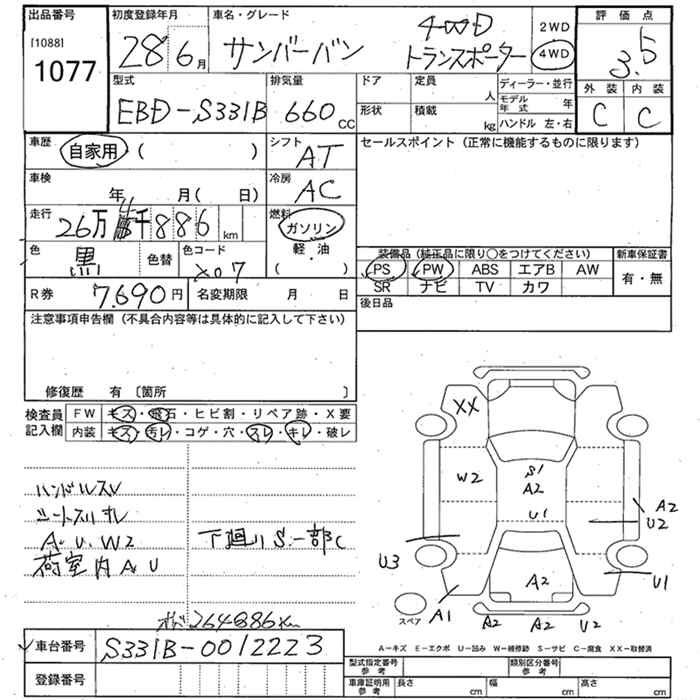 出品番号 初度登録年月 車名・グレード 4WD 2WD 評価点
[1088] 28年6月 サンバーバン トランスポーター 4WD 3.5
1077
型式 排気量 ドア 定員 人 ディーラー・並行 外装 内装
EBD-S331B 660cc 形状 積載 kg モデル年式 年 C C
ハンドル 左・右
車歴 自家用 ( ) シフト AT セールスポイント (正常に機能するものに限ります)
車検 年 月 ( 日) 冷房 AC
走行 26万4千886km 燃料 ガソリン
軽・油
( )
色 黒 色替 色コード X07 装備品 (純正品に限り○をつけてください) 新車保証書
PS PW ABS エアB AW 有・無
SR ナビ TV カワ
R券 7,690円 名変期限 月 日 後日品
注意事項申告欄 (不具合内容等は具体的に記入して下さい)
修復歴 有 〔箇所 〕
検査員記入欄 FW キズ・飛石・ヒビ割・リペア跡・X要
内装 キズ・汚レ・コゲ・穴・スレ・キレ・破レ
XX
W2
S1
A2
U1
A2
U2
ハンドルスレ
シートスリキレ
A.U.W2
荷室内A.U
下廻りS.一部C
U3
A2
U1
A1
A2
A2
U2
スペア
オド264886km
A-キズ E-エクボ U-凹み W-補修跡 S-サビ C-腐食 XX-取替済
車台番号 S331B-0012223
登録番号
型式指定番号 参考 類別区分番号 参考
車庫証明用 参考 長さ cm 幅 cm 高さ cm